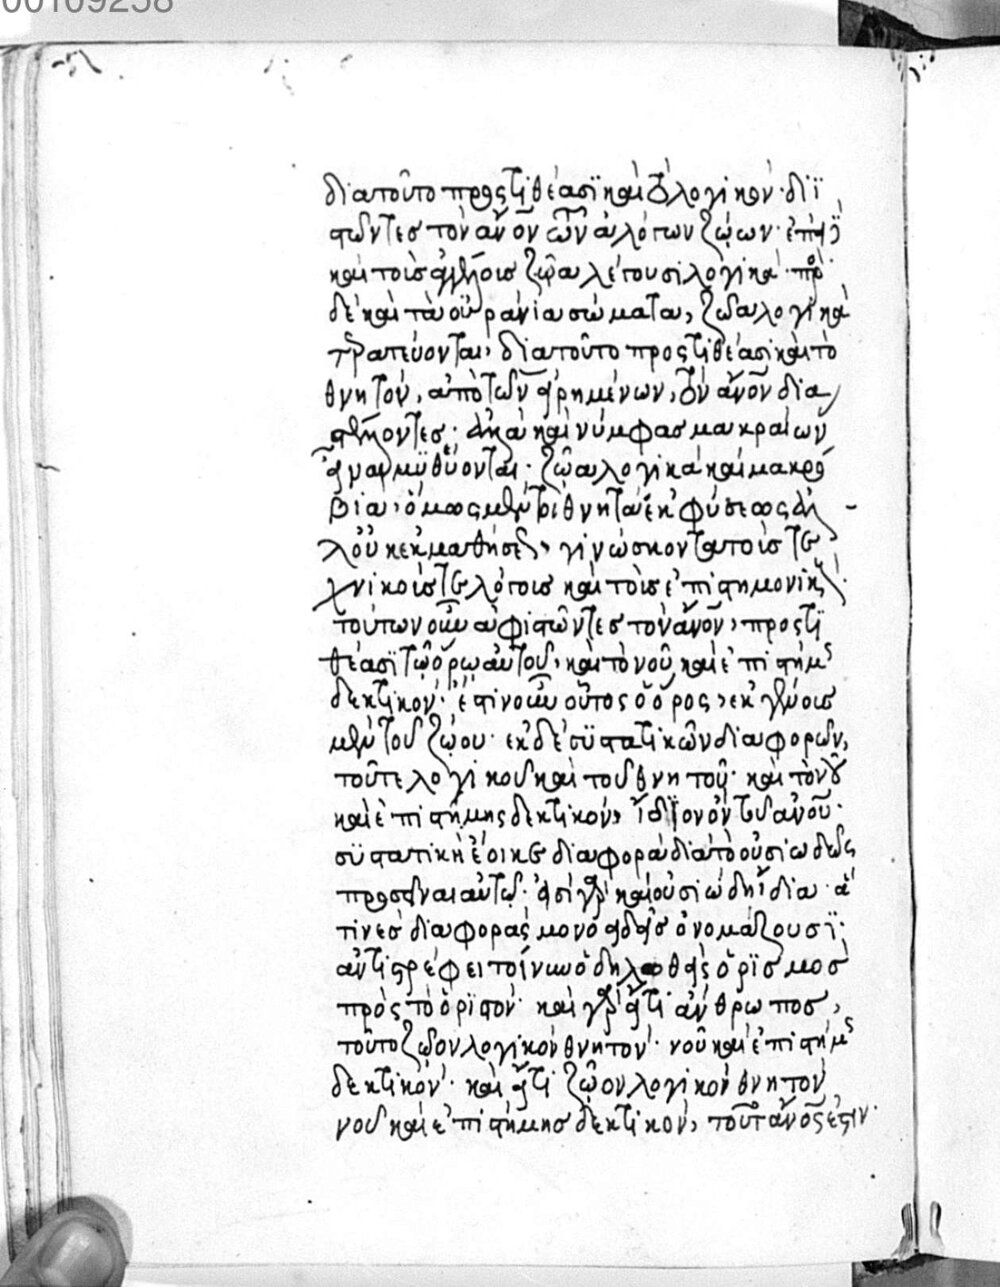 00109258
διατοῦτο προστιθέασι καὶ τὸ λογικόν· διϊ
στῶντες τὸν ἄνον τῶν ἀλόγων ζώων· ἐπεὶ
καὶ τοῖς ἀγγέλοις ζῶα λέγουσι λογικά·
δὲ καὶ τὰ οὐράνια σώματα, ζῶα λογικὰ
διατοῦτο προστιθέασι καὶ τὸ
θνητόν, ἀπὸ τῶν εἰρημένων, τὸν ἄνον δια
στέλλοντες· ἀλλὰ καὶ νύμφας μακραίων
εἶναι μϋθεύονται· ζῶα λογικὰ καὶ μακρό
βια· ὅμως μέντοι θνητὰ ἐκ φύσεως ἀλ
λ' οὐκ ἐκ μαθήσεως, γινώσκοντα τοῖς τε
χνικοῖς τε λόγοις καὶ τοῖς ἐπιστημονικοῖς·
τούτων οὖν ἀφιστῶντες τὸν ἄνον, προστι
θέασι τῶ ὅρω αὐτοῦ, καὶ τὸ νοῦ καὶ ἐπιστήμης
δεκτικόν· ἔστιν οὖν οὗτος ὁ ὅρος, ἐκ γένους
μὲν τοῦ ζώου· ἐκ δὲ συστατικῶν διαφορῶν,
τοῦ τε λογικοῦ καὶ τοῦ θνητοῦ· καὶ τὸ νοῦ
καὶ ἐπιστήμης δεκτικόν, ἴδιον ὂν τοῦ ἀνοῦ·
συστατικὴ ἔοικε διαφορὰ διὰ τὸ οὐσιωδῶς
προσεῖναι αὐτῶ· εἰσὶ γὰρ καὶ οὐσιώδη ἴδια· ἅ
τινες διαφορὰς μονοειδεῖς ὀνομάζουσι·
ἀντιστρέφει τοίνυν ὁ δηλωθεὶς ὁρισμὸς
πρὸς τὸ ὁριστόν· καὶ γὰρ εἴ τι ἄνθρωπος,
τοῦτο ζῶον λογικὸν θνητόν· νοῦ καὶ ἐπιστήμης
δεκτικόν· καὶ εἴ τι ζῶον λογικὸν θνητὸν
νοῦ καὶ ἐπιστήμης δεκτικόν, τοῦτ' ἄνος ἐστιν·